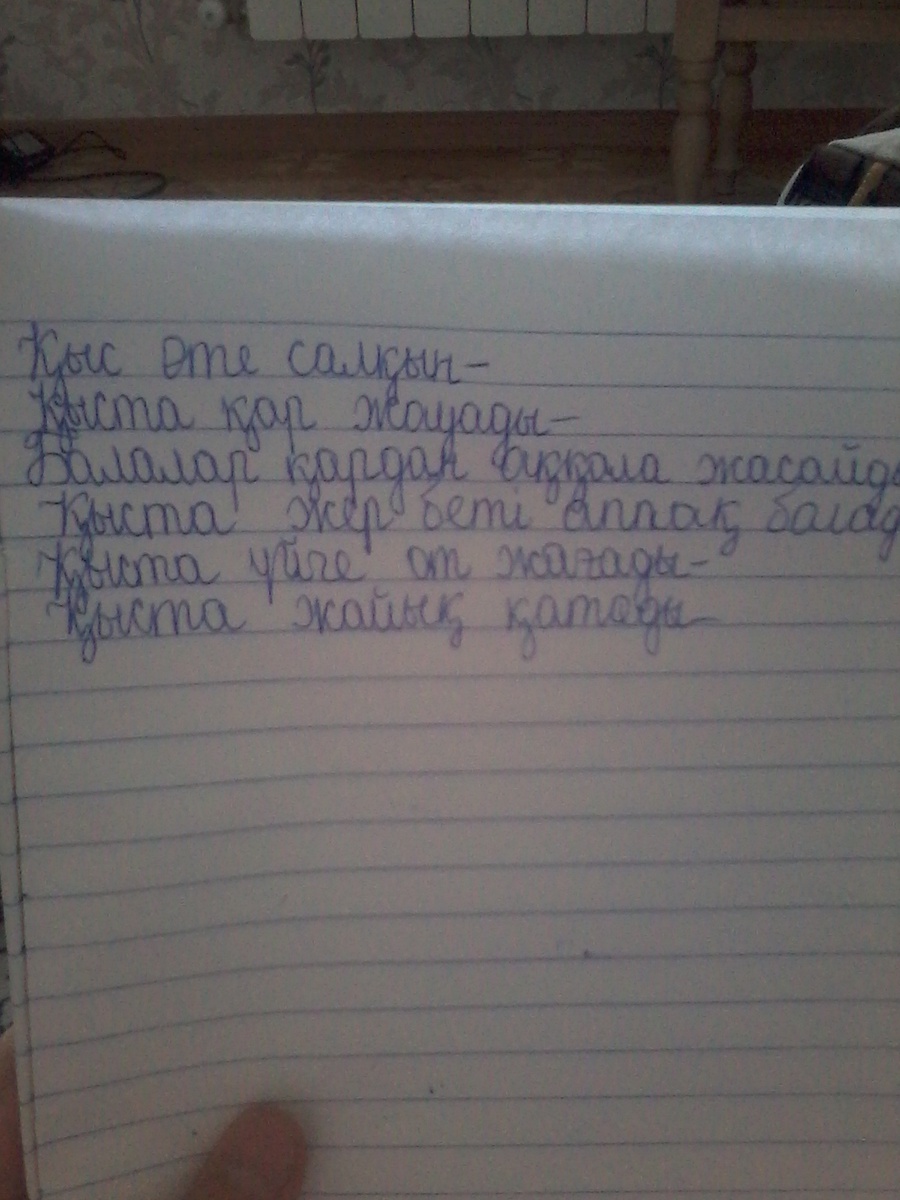 Қыс өте салқын-
Қыста қар жауады-
Балалар қардан аққала жасайды
Қыста жер беті аппақ болад
Қыста үйге от жағады-
Қыста жайық қатады-